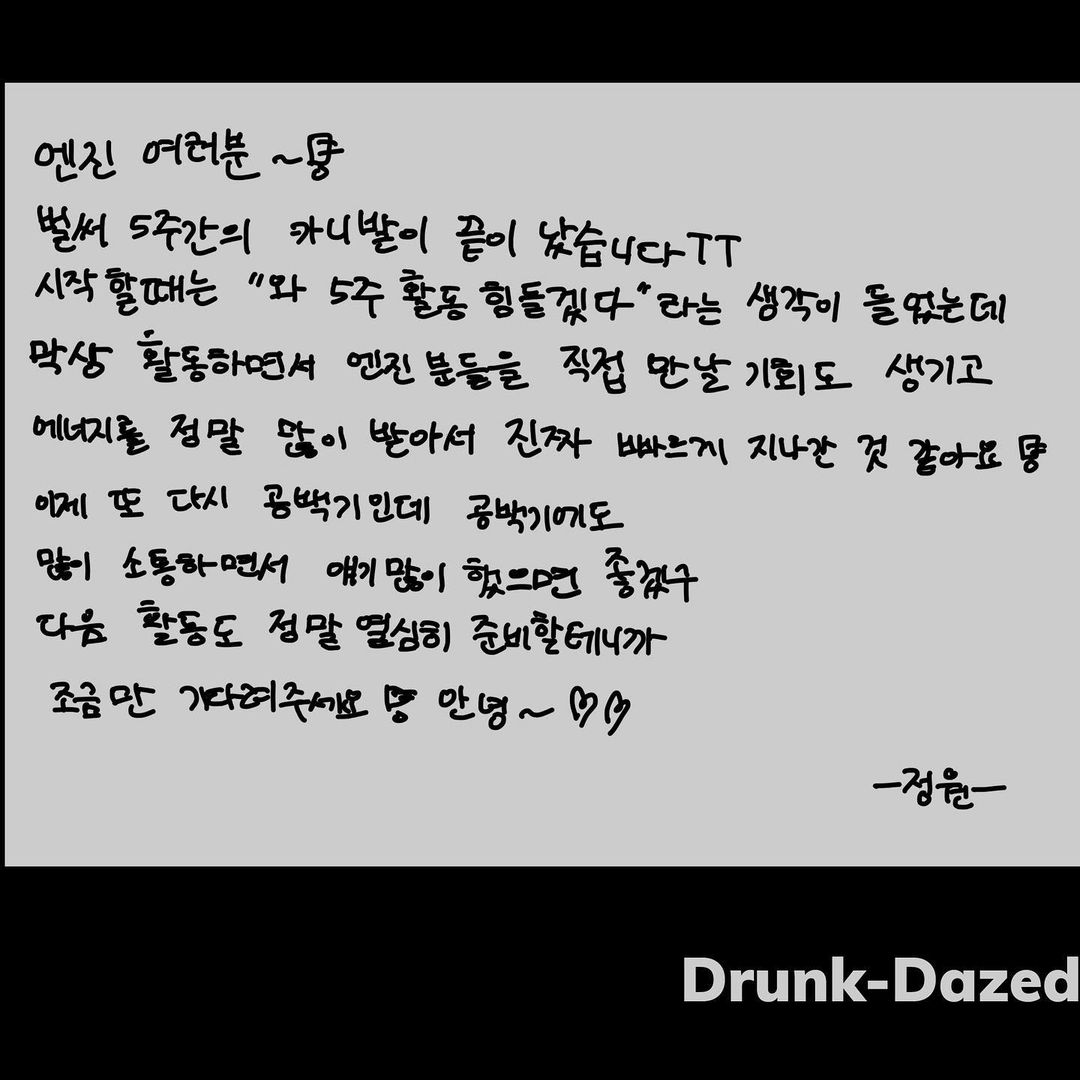 엔진 여러분~뿅
벌써 5주간의 카니발이 끝이 났습니다TT
시작할때는 "와 5주 활동 힘들겠다"라는 생각이 들었는데
막상 활동하면서 엔진분들을 직접 만날 기회도 생기고
에너지를 정말 많이 받아서 진짜 빠르게 지나간 것 같아요
이제 또 다시 공백기인데 공백기에도
많이 소통하면서 얘기많이 했으면 좋겠구
다음 활동도 정말 열심히 준비할테니까
조금만 기다려주세요 안녕~♡♡
-정원-
Drunk-Dazed